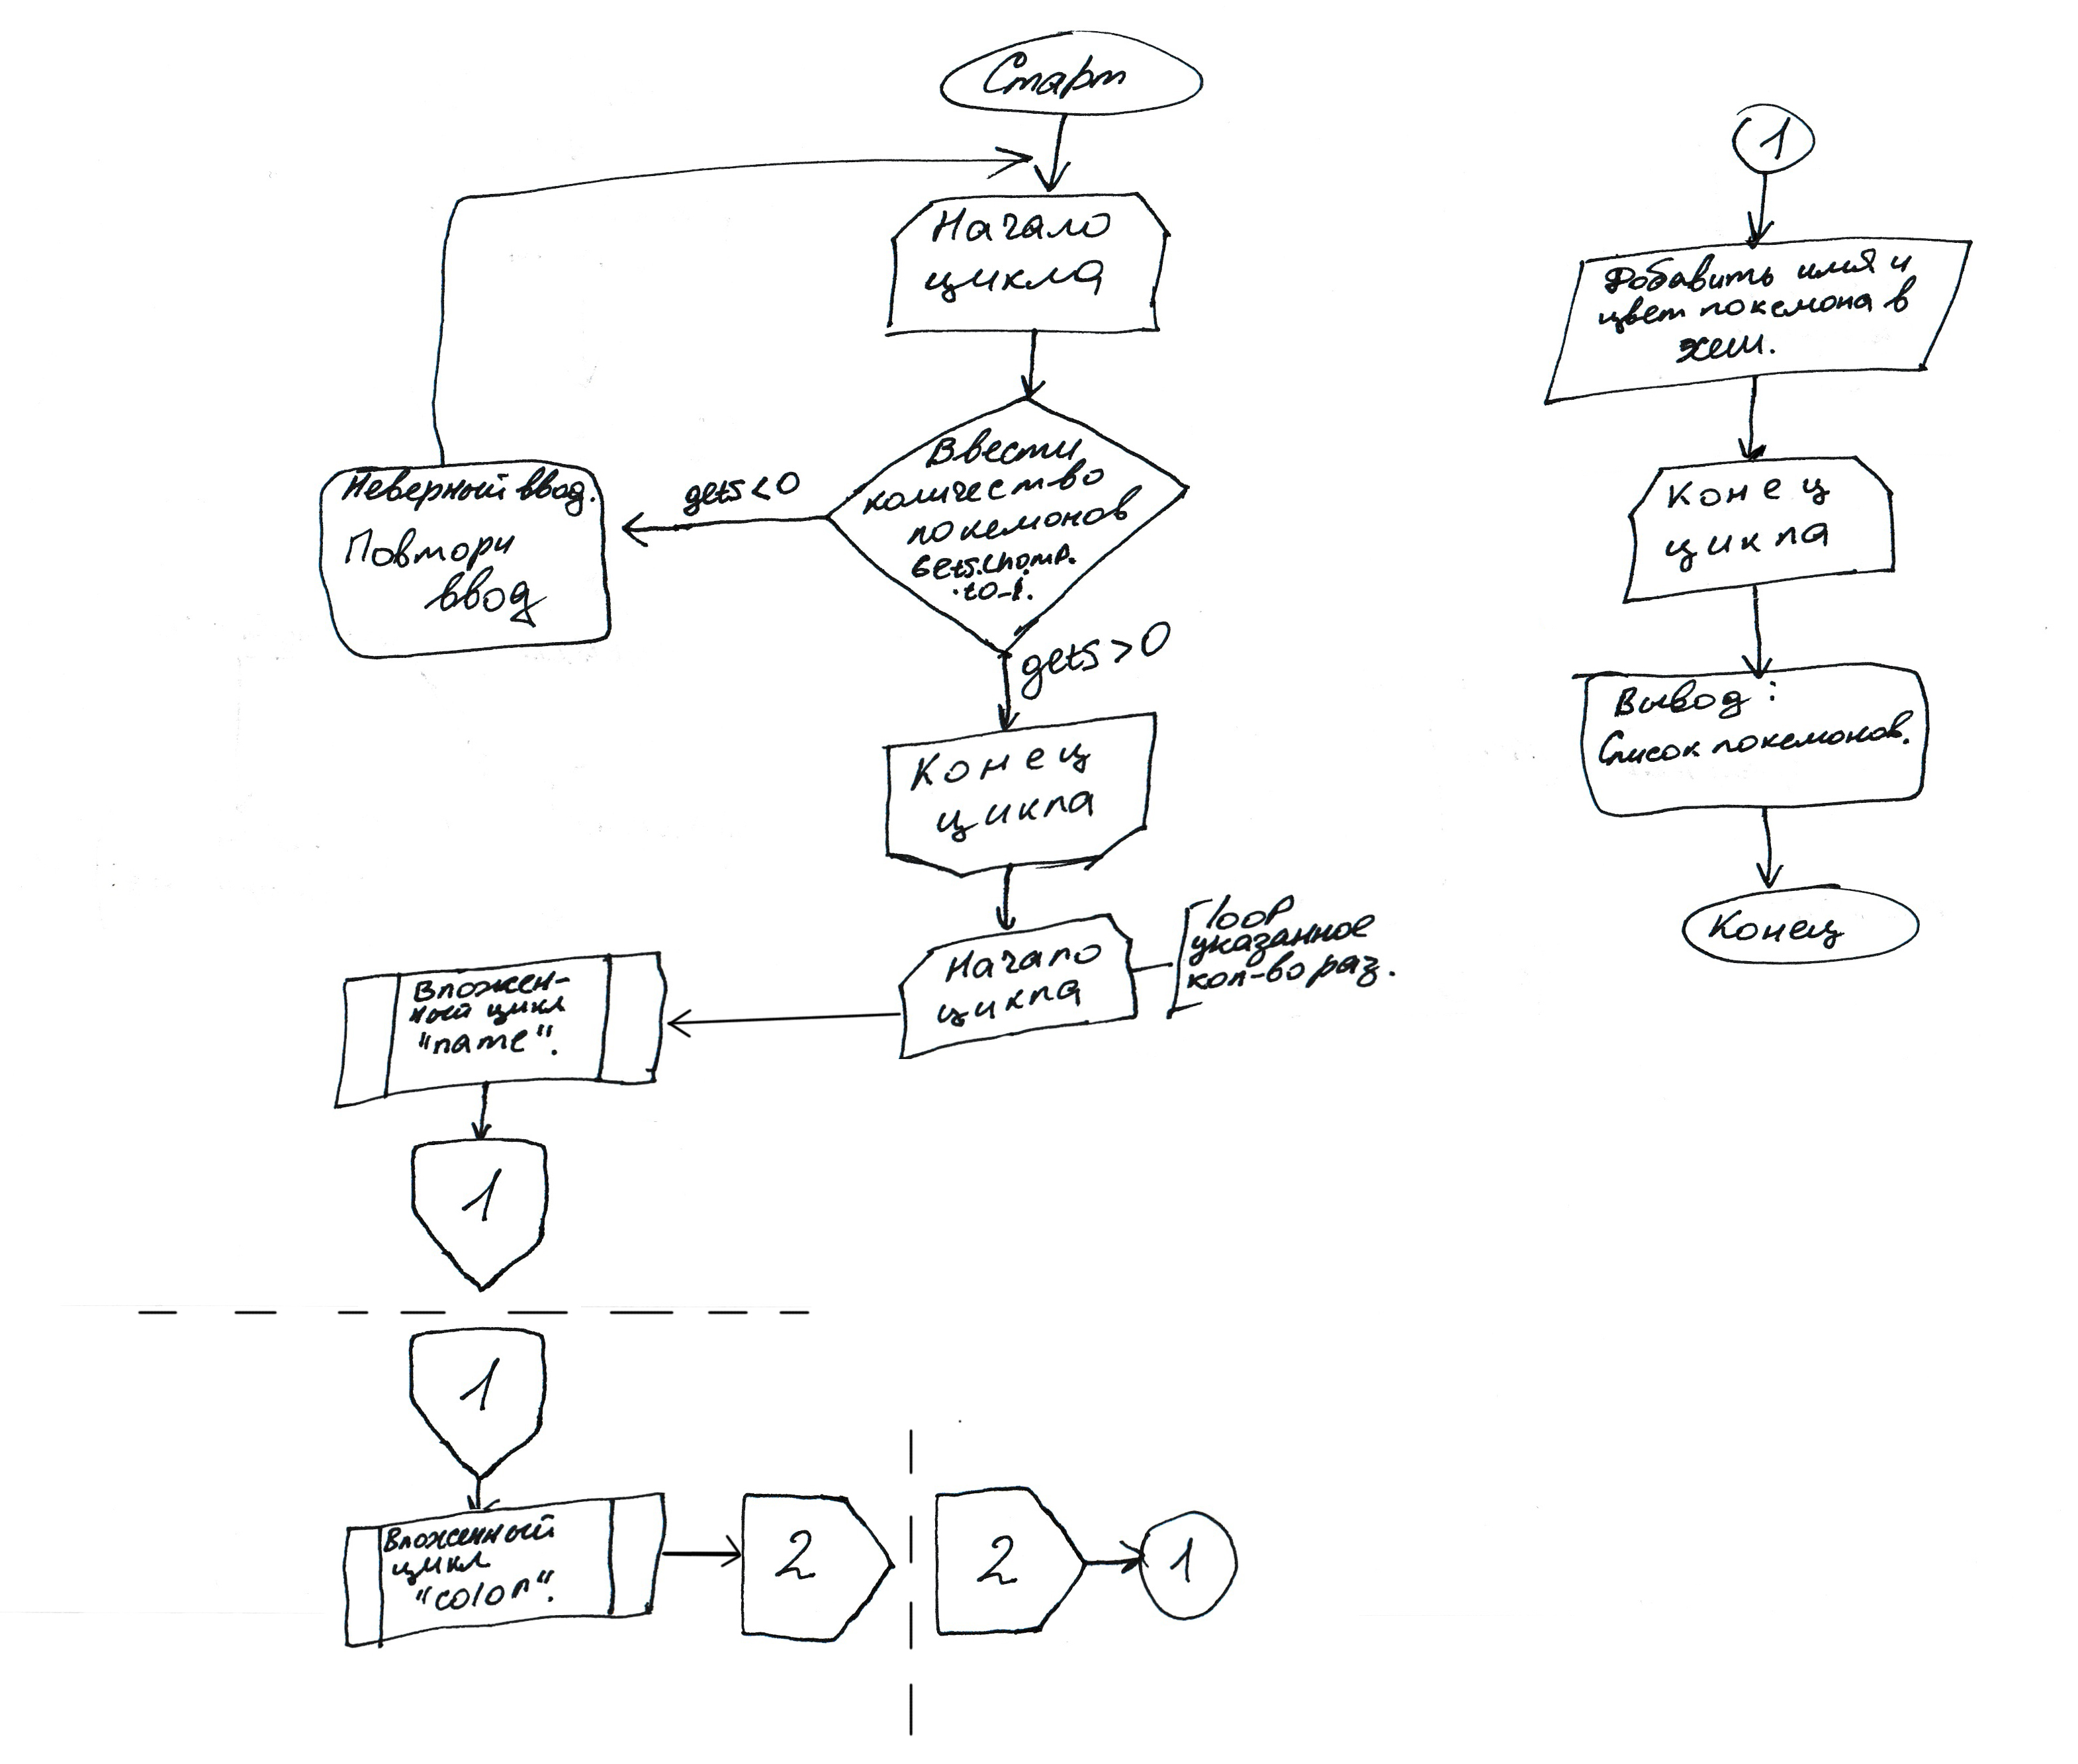 Старт
Начало
цикла
Ввести
количество
покемонов
Gets.chomp.
.to_i.
gets < 0
Неверный ввод.
Повтори
ввод
gets > 0
Конец
цикла
Начало
цикла
loop
указанное
кол-во раз.
Вложен-
ный цикл
"name".
1
1
Вложенный
цикл
"color".
2
2
1
1
Добавить имя и
цвет покемона в
хеш.
Конец
цикла
Вывод:
Список покемонов.
Конец